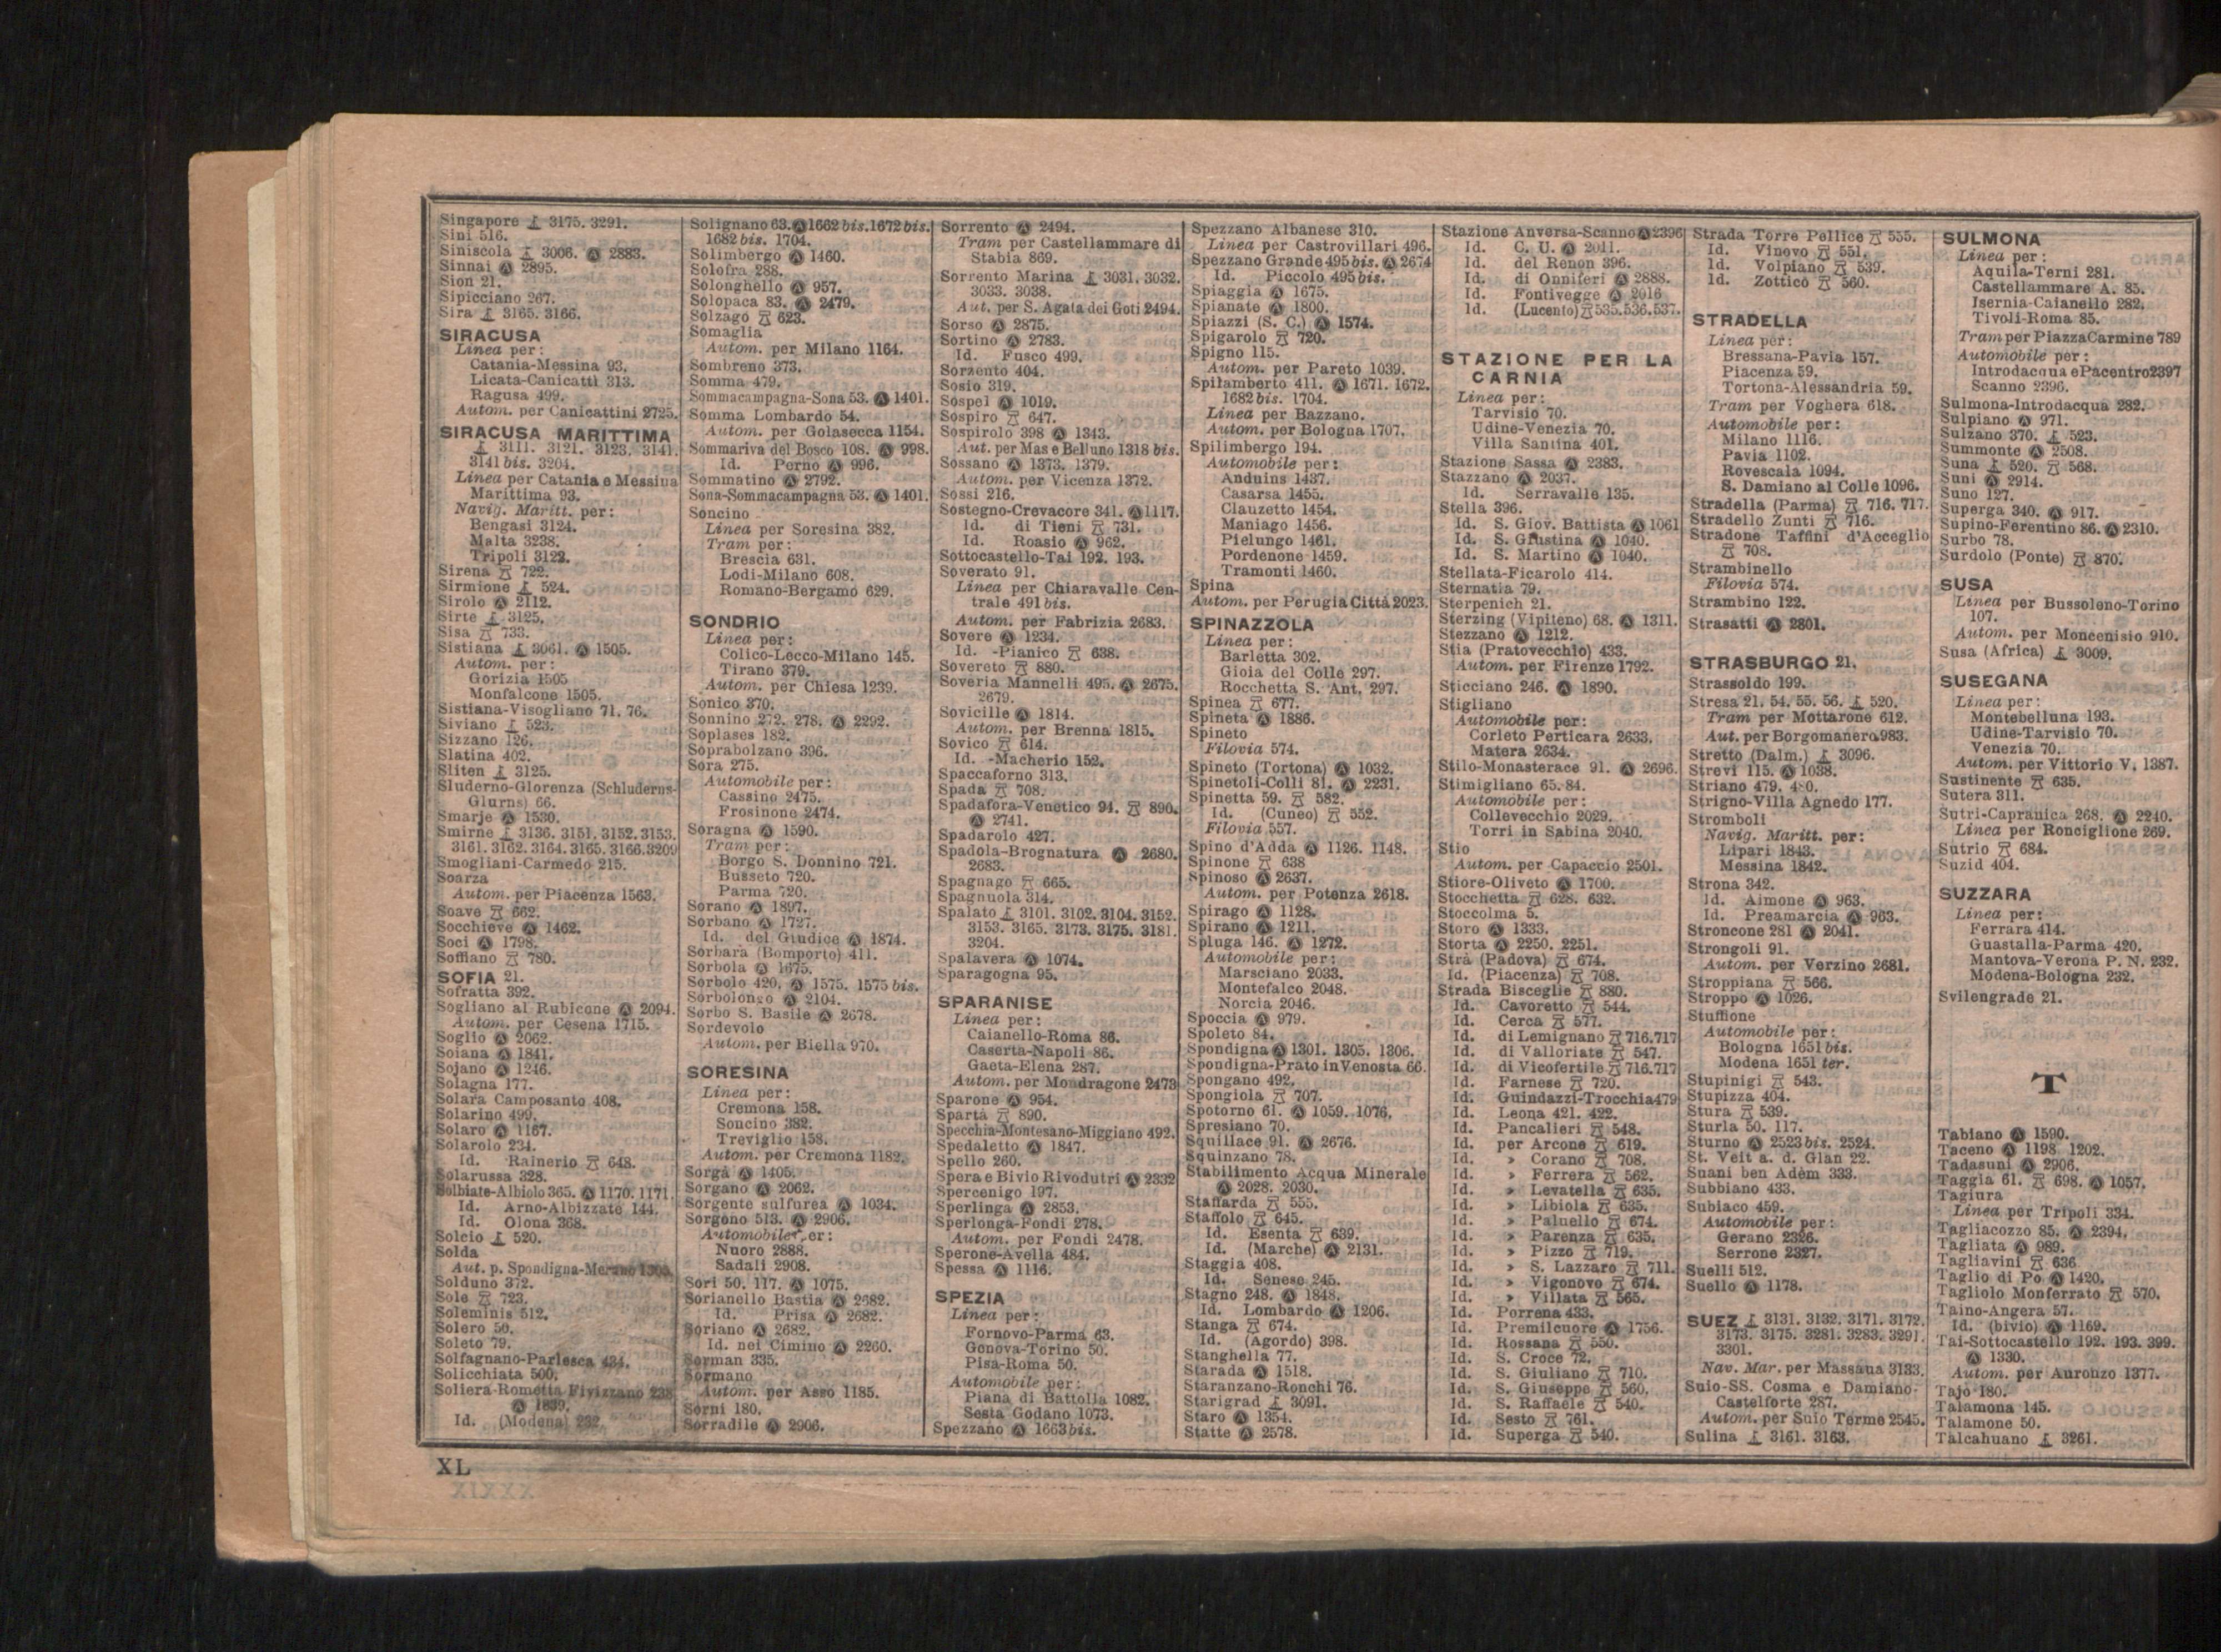 Singapore ⚓ 3175. 3291.
Sini 516.
Siniscola ⚓ 3006. Ⓐ 2883.
Sinnai Ⓐ 2895.
Sion 21.
Sipicciano 267.
Sira ⚓ 3165. 3166.
SIRACUSA
Linea per:
Catania-Messina 93.
Licata-Canicattì 313.
Ragusa 499.
Autom. per Canicattini 2725.
SIRACUSA MARITTIMA
⚓ 3111. 3121. 3123. 3141.
3141 bis. 3204.
Linea per Catania e Messina
Marittima 93.
Navig. Maritt. per:
Bengasi 3124.
Malta 3238.
Tripoli 3122.
Sirena 722.
Sirmione ⚓ 524.
Sirolo Ⓐ 2112.
Sirte ⚓ 3125.
Sisa 733.
Sistiana ⚓ 3061. Ⓐ 1505.
Autom. per:
Gorizia 1505
Monfalcone 1505.
Sistiana-Visogliano 71. 76.
Siviano ⚓ 523.
Sizzano 126.
Slatina 402.
Sliten ⚓ 3125.
Sluderno-Glorenza (Schluderns-
Glurns) 66.
Smarje Ⓐ 1530.
Smirne ⚓ 3136. 3151. 3152. 3153.
3161. 3162. 3164. 3165. 3166. 3209
Smogliani-Carmedo 215.
Soarza
Autom. per Piacenza 1563.
Soave 662.
Socchieve Ⓐ 1462.
Soci Ⓐ 1798.
Soffiano 780.
SOFIA 21.
Sofratta 392.
Sogliano al Rubicone Ⓐ 2094.
Autom. per Cesena 1715.
Soglio Ⓐ 2062.
Soiana Ⓐ 1841.
Sojano Ⓐ 1246.
Solagna 177.
Solara Camposanto 408.
Solarino 499.
Solaro Ⓐ 1167.
Solarolo 234.
Id. Rainerio 648.
Solarussa 328.
Solbiate-Albiolo 365. Ⓐ 1170. 1171.
Id. Arno-Albizzate 144.
Id. Olona 368.
Solcio ⚓ 520.
Solda
Aut. p. Spondigna-Merano
Solduno 372.
Sole 723.
Soleminis 512.
Solero 50.
Soleto 79.
Solfagnano-Parlesca 434.
Solicchiata 500.
Soliera-Rometta Fivizzano 238
Ⓐ 1839.
Id. (Modena) 232.
Solignano 63. Ⓐ 1662 bis. 1672 bis.
1682 bis. 1704.
Solimbergo Ⓐ 1460.
Solofra 288.
Solonghello Ⓐ 957.
Solopaca 83. Ⓐ 2479.
Solzago 623.
Somaglia
Autom. per Milano 1164.
Sombreno 373.
Somma 479.
Sommacampagna-Sona 53. Ⓐ 1401.
Somma Lombardo 54.
Autom. per Golasecca 1154.
Sommariva del Bosco 108. Ⓐ 998.
Id. Perno Ⓐ 996.
Sommatino Ⓐ 2792.
Sona-Sommacampagna 53. Ⓐ 1401.
Soncino
Linea per Soresina 382.
Tram per:
Brescia 631.
Lodi-Milano 608.
Romano-Bergamo 629.
SONDRIO
Linea per:
Colico-Lecco-Milano 145.
Tirano 379.
Autom. per Chiesa 1239.
Sonico 370.
Sonnino 272. 278. Ⓐ 2292.
Soplases 182.
Soprabolzano 396.
Sora 275.
Automobile per:
Cassino 2475.
Frosinone 2474.
Soragna Ⓐ 1590.
Tram per:
Borgo S. Donnino 721.
Busseto 720.
Parma 720.
Sorano Ⓐ 1897.
Sorbano Ⓐ 1727.
Id. del Giudice Ⓐ 1874.
Sorbara (Bomporto) 411.
Sorbola Ⓐ 1675.
Sorbolo 420. Ⓐ 1575. 1575 bis.
Sorbolongo Ⓐ 2104.
Sorbo S. Basile Ⓐ 2678.
Sordevolo
Autom. per Biella 970.
SORESINA
Linea per:
Cremona 158.
Soncino 382.
Treviglio 158.
Autom. per Cremona 1182.
Sorgà Ⓐ 1405.
Sorgano Ⓐ 2062.
Sorgente sulfurea Ⓐ 1034.
Sorgono 513. Ⓐ 2906.
Automobile per:
Nuoro 2888.
Sadali 2908.
Sori 50. 117. Ⓐ 1075.
Sorianello Bastia Ⓐ 2682.
Id. Prisa Ⓐ 2682.
Soriano Ⓐ 2682.
Id. nel Cimino Ⓐ 2260.
Sorman 335.
Sormano
Autom. per Asso 1185.
Sorni 180.
Sorradile Ⓐ 2906.
Sorrento Ⓐ 2494.
Tram per Castellammare di
Stabia 869.
Sorrento Marina ⚓ 3031. 3032.
3033. 3038.
Aut. per S. Agata dei Goti 2494.
Sorso Ⓐ 2875.
Sortino Ⓐ 2783.
Id. Fusco 499.
Sorzento 404.
Sosio 319.
Sospel Ⓐ 1019.
Sospiro 647.
Sospirolo 398 Ⓐ 1343.
Aut. per Mas e Belluno 1318 bis.
Sossano Ⓐ 1373. 1379.
Autom. per Vicenza 1372.
Sossi 216.
Sostegno-Crevacore 341. Ⓐ 1117.
Id. di Tieni 731.
Id. Roasio Ⓐ 962.
Sottocastello-Tai 192. 193.
Soverato 91.
Linea per Chiaravalle Cen-
trale 491 bis.
Autom. per Fabrizia 2683.
Sovere Ⓐ 1234.
Id. -Pianico 638.
Sovereto 880.
Soveria Mannelli 495. Ⓐ 2675.
2679.
Sovicille Ⓐ 1814.
Autom. per Brenna 1815.
Sovico 614.
Id. -Macherio 152.
Spaccaforno 313.
Spada 708.
Spadafora-Venetico 94. 890.
Ⓐ 2741.
Spadarolo 427.
Spadola-Brognatura Ⓐ 2680.
2683.
Spagnago 665.
Spagnuola 314.
Spalato ⚓ 3101. 3102. 3104. 3152.
3153. 3165. 3173. 3175. 3181.
3204.
Spalavera Ⓐ 1074.
Sparagogna 95.
SPARANISE
Linea per:
Caianello-Roma 86.
Caserta-Napoli 86.
Gaeta-Elena 287.
Autom. per Mondragone 2473
Sparone Ⓐ 954.
Spartà 890.
Specchia-Montesano-Miggiano 492.
Spedaletto Ⓐ 1847.
Spello 260.
Spera e Bivio Rivodutri Ⓐ 2332
Spercenigo 197.
Sperlinga Ⓐ 2853.
Sperlonga-Fondi 278.
Autom. per Fondi 2478.
Sperone-Avella 484.
Spessa Ⓐ 1116.
SPEZIA
Linea per:
Fornovo-Parma 63.
Genova-Torino 50.
Pisa-Roma 50.
Automobile per:
Piana di Battolla 1082.
Sesta Godano 1073.
Spezzano Ⓐ 1663 bis.
Spezzano Albanese 310.
Linea per Castrovillari 496.
Spezzano Grande 495 bis. Ⓐ 2674
Id. Piccolo 495 bis.
Spiaggia Ⓐ 1675.
Spianate Ⓐ 1800.
Spiazzi (S. C.) Ⓐ 1574.
Spigarolo 720.
Spigno 115.
Autom. per Pareto 1039.
Spilamberto 411. Ⓐ 1671. 1672.
1682 bis. 1704.
Linea per Bazzano.
Autom. per Bologna 1707.
Spilimbergo 194.
Automobile per:
Anduins 1437.
Casarsa 1455.
Clauzetto 1454.
Maniago 1456.
Pielungo 1461.
Pordenone 1459.
Tramonti 1460.
Spina
Autom. per Perugia Città 2023.
SPINAZZOLA
Linea per:
Barletta 302.
Gioia del Colle 297.
Rocchetta S. Ant. 297.
Spinea 677.
Spineta Ⓐ 1886.
Spineto
Filovia 574.
Spineto (Tortona) Ⓐ 1032.
Spinetoli-Colli 81. Ⓐ 2231.
Spinetta 59. 582.
Id. (Cuneo) 552.
Filovia 557.
Spino d'Adda Ⓐ 1126. 1148.
Spinone 638
Spinoso Ⓐ 2637.
Autom. per Potenza 2618.
Spirago Ⓐ 1128.
Spirano Ⓐ 1211.
Spluga 146. Ⓐ 1272.
Automobile per:
Marsciano 2033.
Montefalco 2048.
Norcia 2046.
Spoccia Ⓐ 979.
Spoleto 84.
Spondigna Ⓐ 1301. 1305. 1306.
Spondigna-Prato in Venosta 66.
Spongano 492.
Spongiola 707.
Spotorno 61. Ⓐ 1059. 1076.
Spresiano 70.
Squillace 91. Ⓐ 2676.
Squinzano 78.
Stabilimento Acqua Minerale
Ⓐ 2028. 2030.
Staffarda 555.
Staffolo 645.
Id. Esenta 639.
Id. (Marche) Ⓐ 2131.
Staggia 408.
Id. Senese 245.
Stagno 248. Ⓐ 1848.
Id. Lombardo Ⓐ 1206.
Stanga 674.
Id. (Agordo) 398.
Stanghella 77.
Starada Ⓐ 1518.
Staranzano-Ronchi 76.
Starigrad ⚓ 3091.
Staro Ⓐ 1354.
Statte Ⓐ 2578.
Stazione Anversa-Scanno Ⓐ 2396
Id. C. U. Ⓐ 2011.
Id. del Renon 396.
Id. di Onniferi Ⓐ 2888.
Id. Fontivegge Ⓐ 2016
Id. (Lucento) 535. 536. 537.
STAZIONE PER LA
CARNIA
Linea per:
Tarvisio 70.
Udine-Venezia 70.
Villa Santina 401.
Stazione Sassa Ⓐ 2383.
Stazzano Ⓐ 2037.
Id. Serravalle 135.
Stella 396.
Id. S. Giov. Battista Ⓐ 1061
Id. S. Giustina Ⓐ 1040.
Id. S. Martino Ⓐ 1040.
Stellata-Ficarolo 414.
Sternatia 79.
Sterpenich 21.
Sterzing (Vipiteno) 68. Ⓐ 1311.
Stezzano Ⓐ 1212.
Stia (Pratovecchio) 433.
Autom. per Firenze 1792.
Sticciano 246. Ⓐ 1890.
Stigliano
Automobile per:
Corleto Perticara 2633.
Matera 2634.
Stilo-Monasterace 91. Ⓐ 2696.
Stimigliano 65. 84.
Automobile per:
Collevecchio 2029.
Torri in Sabina 2040.
Stio
Autom. per Capaccio 2501.
Stiore-Oliveto Ⓐ 1700.
Stocchetta 628. 632.
Stoccolma 5.
Storo Ⓐ 1333.
Storta Ⓐ 2250. 2251.
Strà (Padova) 674.
Id. (Piacenza) 708.
Strada Bisceglie 880.
Id. Cavoretto 544.
Id. Cerca 577.
Id. di Lemignano 716. 717
Id. di Valloriate 547.
Id. di Vicofertile 716. 717
Id. Farnese 720.
Id. Guindazzi-Trocchia 479
Id. Leona 421. 422.
Id. Pancalieri 548.
Id. per Arcone 619.
Id. » Corano 708.
Id. » Ferrera 562.
Id. » Levatella 635.
Id. » Libiola 635.
Id. » Paluello 674.
Id. » Parenza 635.
Id. » Pizzo 719.
Id. » S. Lazzaro 711.
Id. » Vigonovo 674.
Id. » Villata 565.
Id. Porrena 433.
Id. Premilcuore Ⓐ 1756.
Id. Rossana 550.
Id. S. Croce 72.
Id. S. Giuliano 710.
Id. S. Giuseppe 560.
Id. S. Raffaele 540.
Id. Sesto 761.
Id. Superga 540.
Strada Torre Pellice 555.
Id. Vinovo 551.
Id. Volpiano 539.
Id. Zottico 560.
STRADELLA
Linea per:
Bressana-Pavia 157.
Piacenza 59.
Tortona-Alessandria 59.
Tram per Voghera 618.
Automobile per:
Milano 1116.
Pavia 1102.
Rovescala 1094.
S. Damiano al Colle 1096.
Stradella (Parma) 716. 717.
Stradello Zunti 716.
Stradone Taffini d'Acceglio
708.
Strambinello
Filovia 574.
Strambino 122.
Strasatti Ⓐ 2801.
STRASBURGO 21.
Strassoldo 199.
Stresa 21. 54. 55. 56. ⚓ 520.
Tram per Mottarone 612.
Aut. per Borgomanero 983.
Stretto (Dalm.) ⚓ 3096.
Strevi 115. Ⓐ 1038.
Striano 479. 480.
Strigno-Villa Agnedo 177.
Stromboli
Navig. Maritt. per:
Lipari 1843.
Messina 1842.
Strona 342.
Id. Aimone Ⓐ 963.
Id. Preamarcia Ⓐ 963.
Stroncone 281 Ⓐ 2041.
Strongoli 91.
Autom. per Verzino 2681.
Stroppiana 566.
Stroppo Ⓐ 1026.
Stuffione
Automobile per:
Bologna 1651 bis.
Modena 1651 ter.
Stupinigi 543.
Stupizza 404.
Stura 539.
Sturla 50. 117.
Sturno Ⓐ 2523 bis. 2524.
St. Veit a. d. Glan 22.
Suani ben Adèm 333.
Subbiano 433.
Subiaco 459.
Automobile per:
Gerano 2326.
Serrone 2327.
Suelli 512.
Suello Ⓐ 1178.
SUEZ ⚓ 3131. 3132. 3171. 3172.
3173. 3175. 3281. 3283. 3291.
3301.
Nav. Mar. per Massaua 3133.
Suio-SS. Cosma e Damiano-
Castelforte 287.
Autom. per Suio Terme 2545.
Sulina ⚓ 3161. 3163.
SULMONA
Linea per:
Aquila-Terni 281.
Castellammare A. 85.
Isernia-Caianello 282.
Tivoli-Roma 85.
Tram per Piazza Carmine 789
Automobile per:
Introdacqua e Pacentro 2397
Scanno 2396.
Sulmona-Introdacqua 282.
Sulpiano Ⓐ 971.
Sulzano 370. ⚓ 523.
Summonte Ⓐ 2508.
Suna ⚓ 520. 568.
Suni Ⓐ 2914.
Suno 127.
Superga 340. Ⓐ 917.
Supino-Ferentino 86. Ⓐ 2310.
Surbo 78.
Surdolo (Ponte) 870.
SUSA
Linea per Bussoleno-Torino
107.
Autom. per Moncenisio 910.
Susa (Africa) ⚓ 3009.
SUSEGANA
Linea per:
Montebelluna 193.
Udine-Tarvisio 70.
Venezia 70.
Autom. per Vittorio V. 1387.
Sustinente 635.
Sutera 311.
Sutri-Capranica 268. Ⓐ 2240.
Linea per Ronciglione 269.
Sutrio 684.
Suzid 404.
SUZZARA
Linea per:
Ferrara 414.
Guastalla-Parma 420.
Mantova-Verona P. N. 232.
Modena-Bologna 232.
Svilengrade 21.
T
Tabiano Ⓐ 1590.
Taceno Ⓐ 1198. 1202.
Tadasuni Ⓐ 2906.
Taggia 61. 698. Ⓐ 1057.
Tagiura
Linea per Tripoli 334.
Tagliacozzo 85. Ⓐ 2394.
Tagliata Ⓐ 989.
Tagliavini 636
Taglio di Po Ⓐ 1420.
Tagliolo Monferrato 570.
Taino-Angera 57.
Id. (bivio) Ⓐ 1169.
Tai-Sottocastello 192. 193. 399.
Ⓐ 1330.
Autom. per Auronzo 1377.
Tajo 180.
Talamona 145.
Talamone 50.
Talcahuano ⚓ 3261.
XL